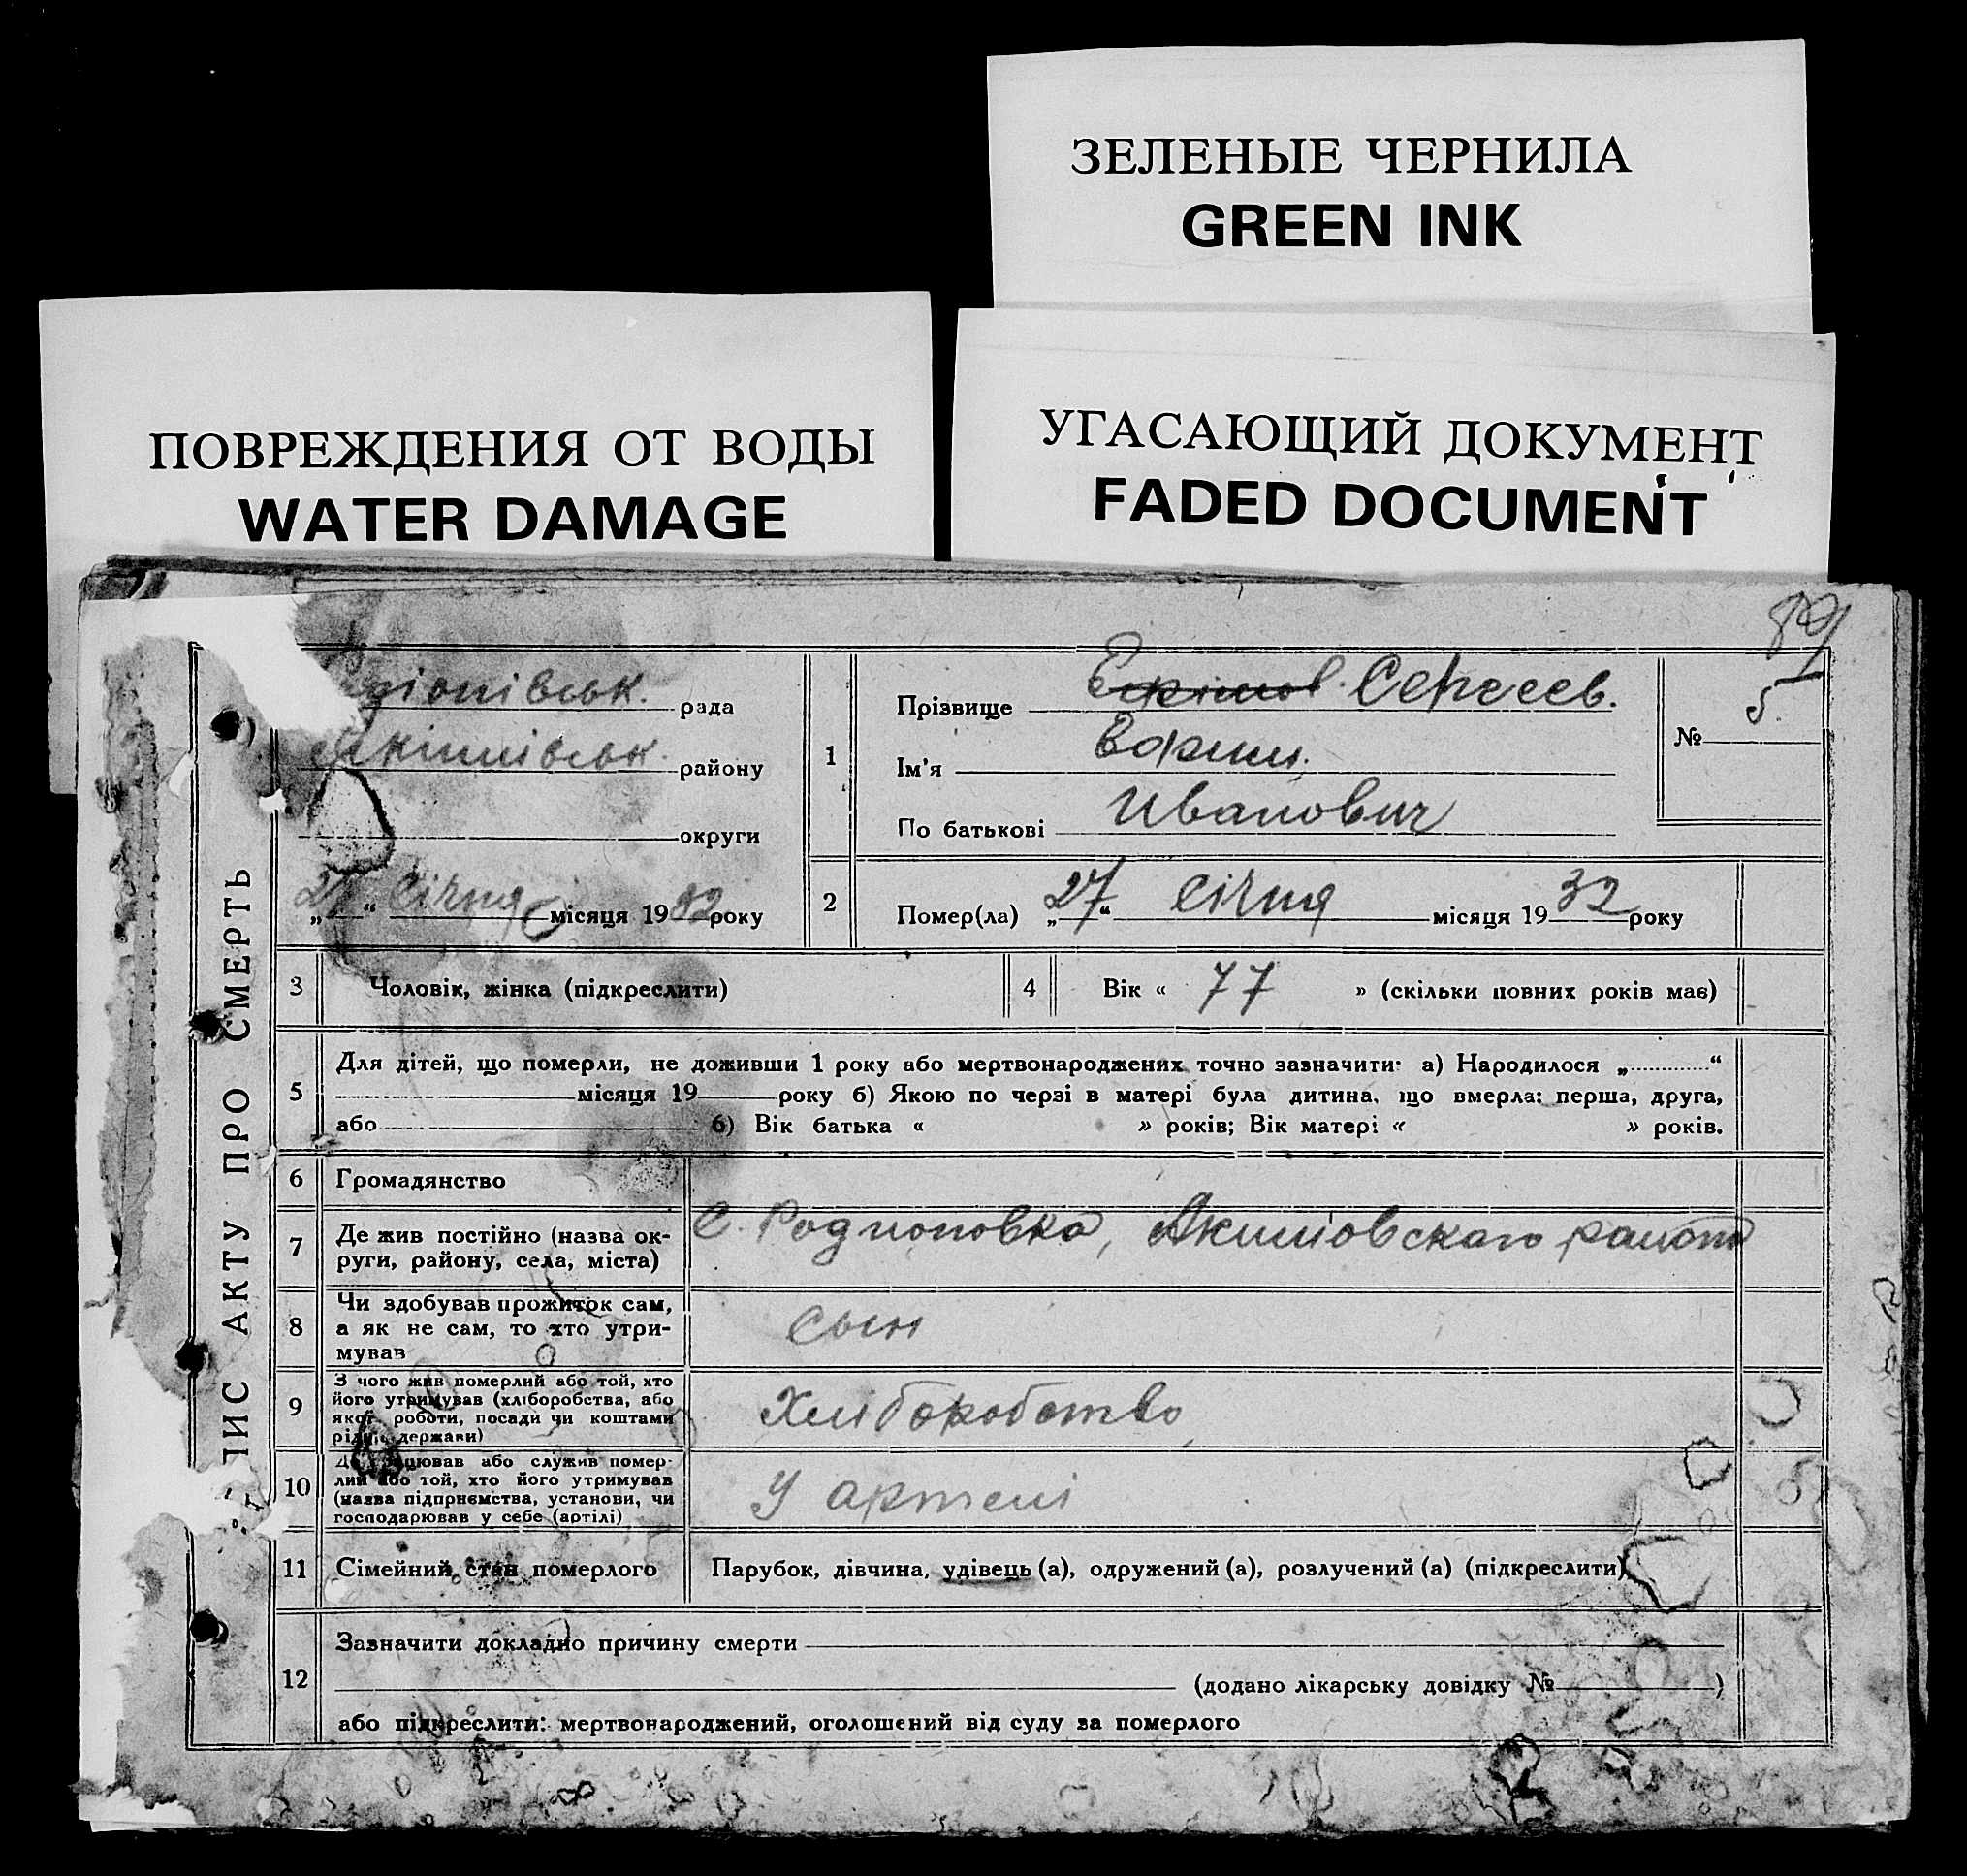 ЗЕЛЕНЫЕ ЧЕРНИЛА
GREEN INK
ПОВРЕЖДЕНИЯ ОТ ВОДЫ
WATER DAMAGE
УГАСАЮЩИЙ ДОКУМЕНТ
FADED DOCUMENT
89
ПИС АКТУ ПРО СМЕРТЬ
діонівськ. рада
Акимівськ. району
округи
„27“ Січня місяця 1932 року
1
Прізвище Сергеев.
Ім'я
По батькові Иванович
№ 5
2 Помер(ла) „27“ Січня місяця 1932 року
3 Чоловік, жінка (підкреслити)
4 Вік « 77 » (скільки повних років має)
5 Для дітей, що померли, не доживши 1 року або мертвонароджених точно зазначити: а) Народилося „ “
місяця 19 року б) Якою по черзі в матері була дитина, що вмерла: перша, друга,
або б) Вік батька « » років; Вік матері « » років.
6 Громадянство
7 Де жив постійно (назва ок-
руги, району, села, міста)
С. Родионовка, Акимовскаго района
8 Чи здобував прожиток сам,
а як не сам, то хто утри-
мував
сын
9 З чого жив померлий або той, хто
його утримував (хліборобства, або
якої роботи, посади чи коштами
рідні, держави)
Хліборобство
10 Де працював або служив помер-
лий або той, хто його утримував
(назва підприємства, установи, чи
господарював у себе (артілі)
У артелі
11 Сімейний стан померлого
Парубок, дівчина, удівець (а), одружений (а), розлучений (а) (підкреслити)
12 Зазначити докладно причину смерти
(додано лікарську довідку № )
або підкреслити: мертвонароджений, оголошений від суду за померлого